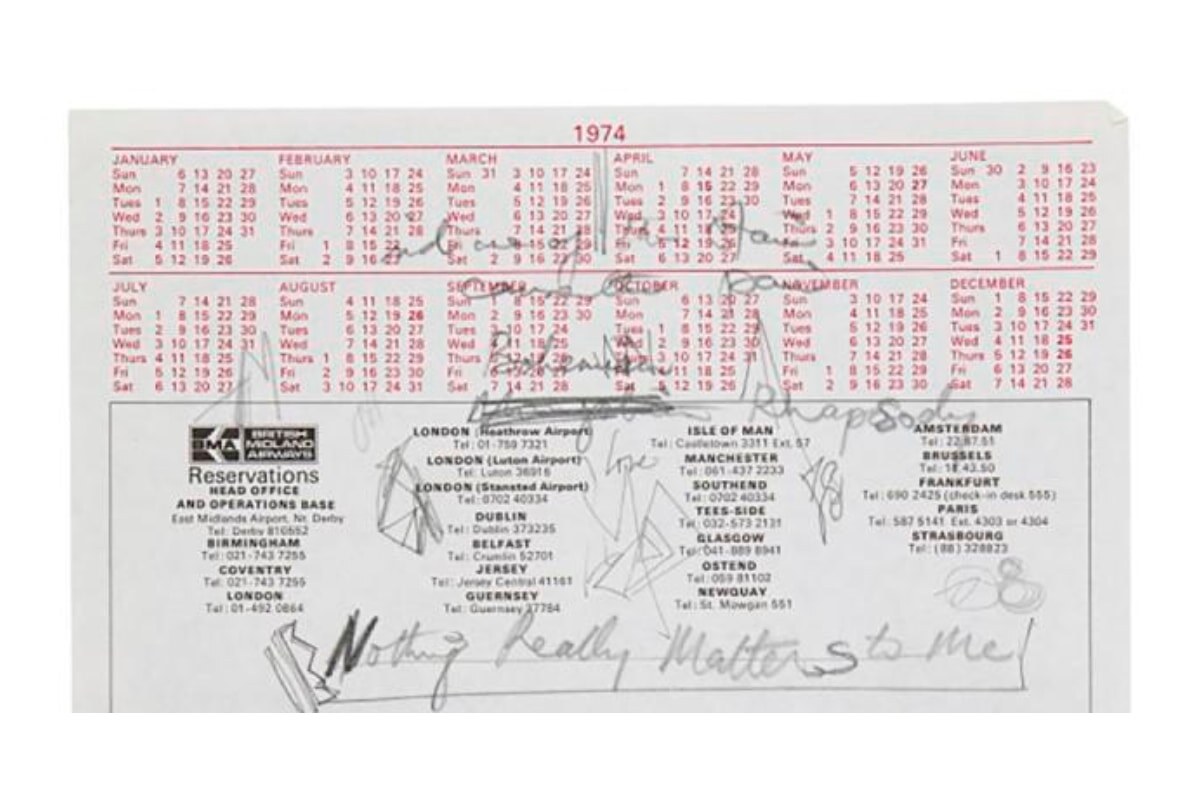 1974
JANUARY
Sun 6 13 20 27
Mon 7 14 21 28
Tues 1 8 15 22 29
Wed 2 9 16 23 30
Thurs 3 10 17 24 31
Fri 4 11 18 25
Sat 5 12 19 26
FEBRUARY
Sun 3 10 17 24
Mon 4 11 18 25
Tues 5 12 19 26
Wed 6 13 20 27
Thurs 7 14 21 28
Fri 1 8 15 22
Sat 2 9 16 23
MARCH
Sun 31 3 10 17 24
Mon 4 11 18 25
Tues 5 12 19 26
Wed 6 13 20 27
Thurs 7 14 21 28
Fri 1 8 15 22 29
Sat 2 9 16 23 30
APRIL
Sun 7 14 21 28
Mon 1 8 15 22 29
Tues 2 9 16 23 30
Wed 3 10 17 24
Thurs 4 11 18 25
Fri 5 12 19 26
Sat 6 13 20 27
MAY
Sun 5 12 19 26
Mon 6 13 20 27
Tues 7 14 21 28
Wed 1 8 15 22 29
Thurs 2 9 16 23 30
Fri 3 10 17 24 31
Sat 4 11 18 25
JUNE
Sun 30 2 9 16 23
Mon 3 10 17 24
Tues 4 11 18 25
Wed 5 12 19 26
Thurs 6 13 20 27
Fri 7 14 21 28
Sat 1 8 15 22 29
JULY
Sun 7 14 21 28
Mon 1 8 15 22 29
Tues 2 9 16 23 30
Wed 3 10 17 24 31
Thurs 4 11 18 25
Fri 5 12 19 26
Sat 6 13 20 27
AUGUST
Sun 4 11 18 25
Mon 5 12 19 26
Tues 6 13 20 27
Wed 7 14 21 28
Thurs 1 8 15 22 29
Fri 2 9 16 23 30
Sat 3 10 17 24 31
SEPTEMBER
Sun 1 8 15 22 29
Mon 2 9 16 23 30
Tues 3 10 17 24
Wed 4 11 18 25
Thurs 5 12 19 26
Fri 6 13 20 27
Sat 7 14 21 28
OCTOBER
Sun 6 13 20 27
Mon 7 14 21 28
Tues 1 8 15 22 29
Wed 2 9 16 23 30
Thurs 3 10 17 24 31
Fri 4 11 18 25
Sat 5 12 19 26
NOVEMBER
Sun 3 10 17 24
Mon 4 11 18 25
Tues 5 12 19 26
Wed 6 13 20 27
Thurs 7 14 21 28
Fri 1 8 15 22 29
Sat 2 9 16 23 30
DECEMBER
Sun 1 8 15 22 29
Mon 2 9 16 23 30
Tues 3 10 17 24 31
Wed 4 11 18 25
Thurs 5 12 19 26
Fri 6 13 20 27
Sat 7 14 21 28
of the
Bohemian
Rhapsody
BMA BRITISH MIDLAND AIRWAYS
Reservations
HEAD OFFICE
AND OPERATIONS BASE
East Midlands Airport, Nr. Derby
Tel: Derby 810552
BIRMINGHAM
Tel: 021-743 7255
COVENTRY
Tel: 021-743 7255
LONDON
Tel: 01-492 0864
LONDON (Heathrow Airport)
Tel: 01-759 7321
LONDON (Luton Airport)
Tel: Luton 36916
LONDON (Stansted Airport)
Tel: 0702 40334
DUBLIN
Tel: Dublin 373235
BELFAST
Tel: Crumlin 52701
JERSEY
Tel: Jersey Central 41161
GUERNSEY
Tel: Guernsey 37784
Love
ISLE OF MAN
Tel: Castletown 3311 Ext. 57
MANCHESTER
Tel: 061-437 2233
SOUTHEND
Tel: 0702 40334
TEES-SIDE
Tel: 032-573 2131
GLASGOW
Tel: 041-889 8941
OSTEND
Tel: 059 81102
NEWQUAY
Tel: St. Mawgan 551
AMSTERDAM
Tel: 22.87.51
BRUSSELS
Tel: 18.43.50
FRANKFURT
Tel: 690 2425 (check-in desk 555)
PARIS
Tel: 587 5141 Ext. 4303 or 4304
STRASBOURG
Tel: (88) 328823
Nothing Really Matters to Me